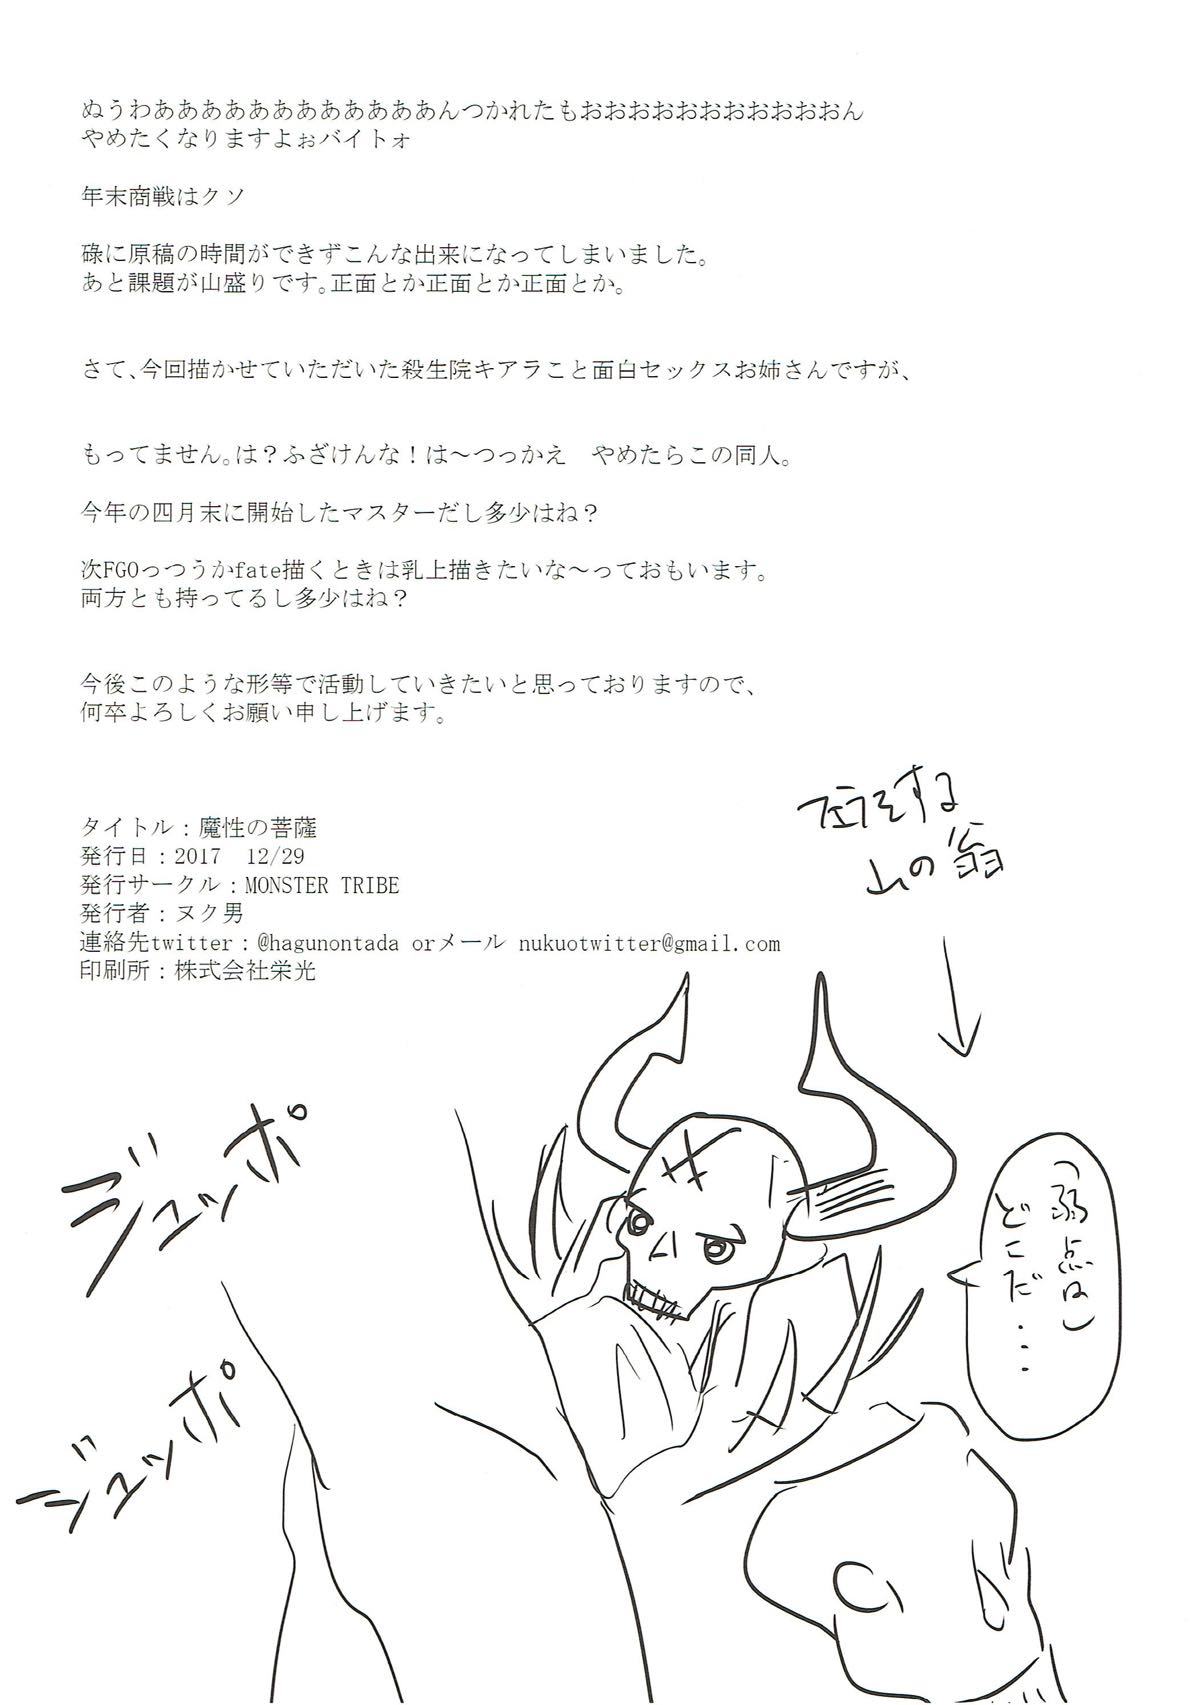 ぬうわああああああああああああんつかれたもおおおおおおおおおおおおん
やめたくなりますよぉバイトォ
年末商戦はクソ
碌に原稿の時間ができずこんな出来になってしまいました。
あと課題が山盛りです。正面とか正面とか正面とか。
さて、今回描かせていただいた殺生院キアラこと面白セックスお姉さんですが、
もってません。は？ふざけんな！は～つっかえ　やめたらこの同人。
今年の四月末に開始したマスターだし多少はね？
次FGOっつうかfate描くときは乳上描きたいな～っておもいます。
両方とも持ってるし多少はね？
今後このような形等で活動していきたいと思っておりますので、
何卒よろしくお願い申し上げます。
タイトル：魔性の菩薩
発行日：2017　12/29
発行サークル：MONSTER TRIBE
発行者：ヌク男
連絡先twitter：@hagunontada orメール nukuotwitter@gmail.com
印刷所：株式会社栄光
フェラをする
山の翁
(弱点は)
どこだ・・・
ジュッポ
ジュッポ